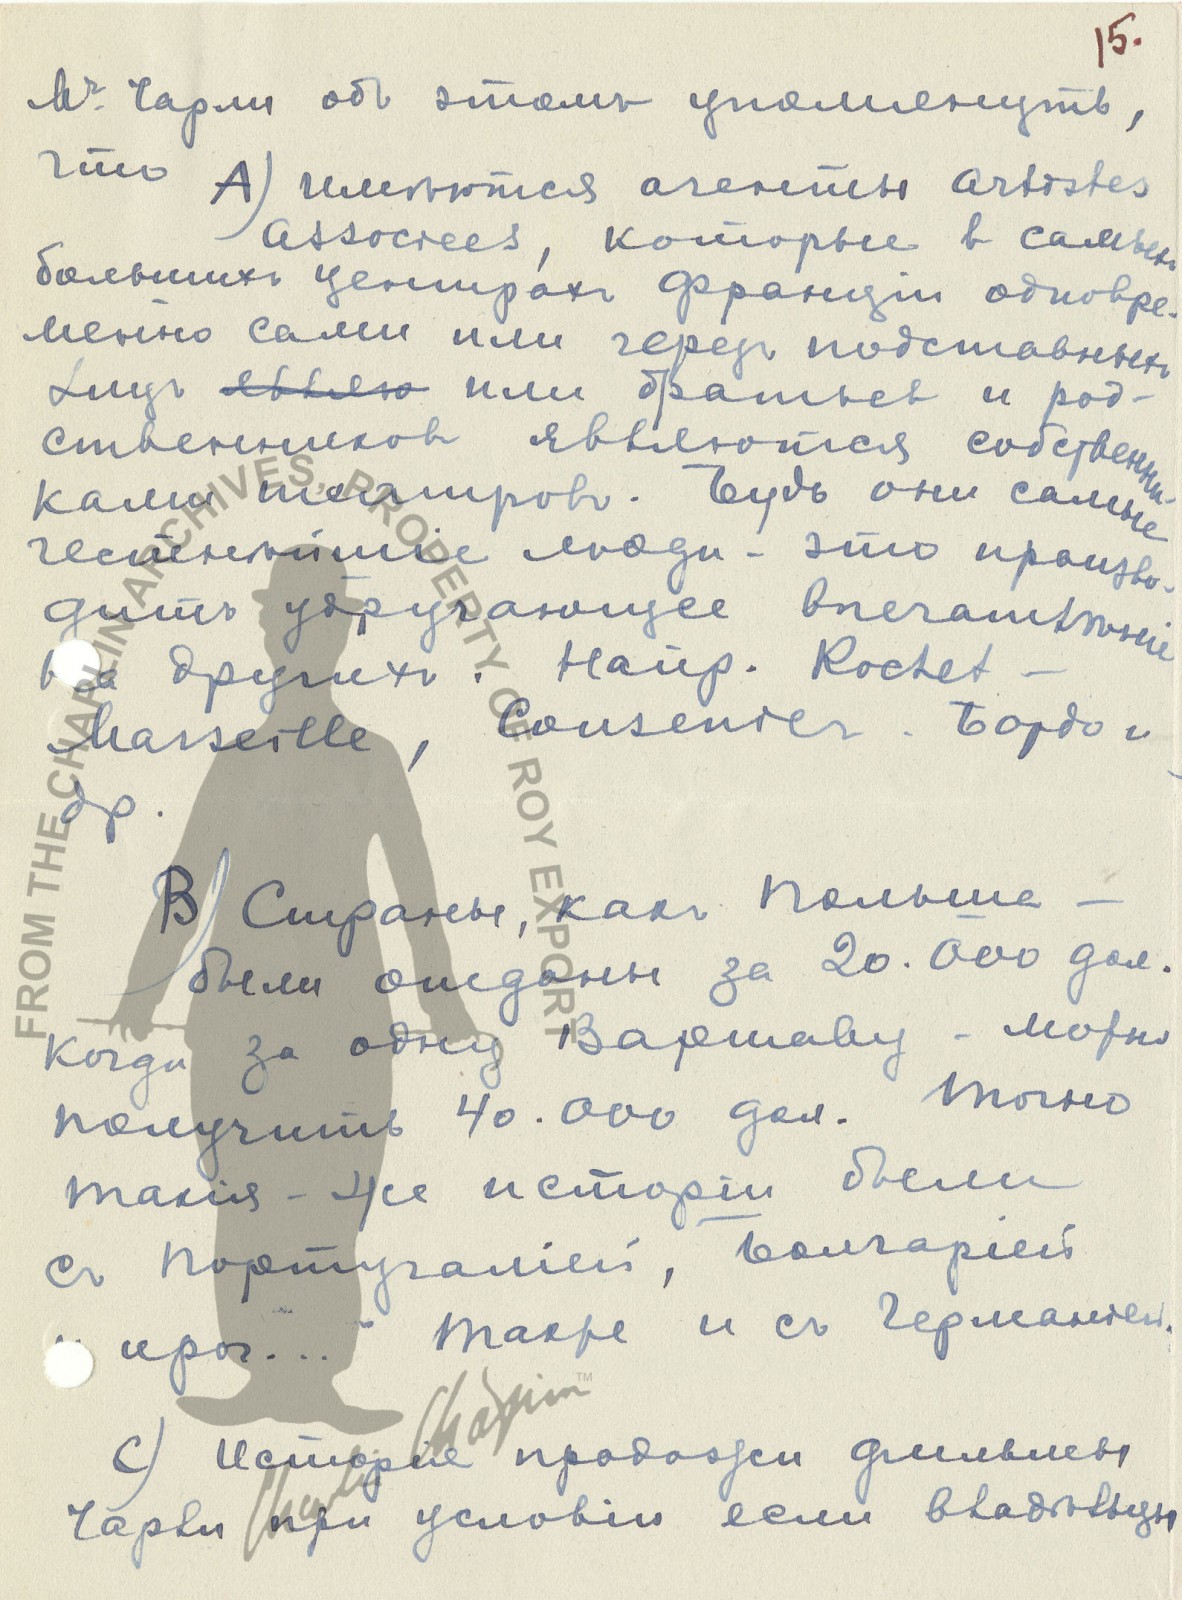 15.
Мr. Чарли объ этомъ упомянуть,
что A) имѣются агенты Artistes
Associees, которые в самыхъ
большихъ центрахъ Франціи одновре-
менно сами или черезъ подставныхъ
лицъ или братьев и род-
ственников являются собственни-
ками театровъ. Будь они самые
честнѣйшіе люди - это произво-
дитъ удручающее впечатлѣніе
на другихъ. Напр. Rochet -
Marseille, Cousenier. Бордо и
др.
B) Страны, какъ Польша -
были отданы за 20.000 дол.
Когда за одну Варшаву - можно
получить 40.000 дол. Точно
такія-же исторіи были
съ Португаліей, Болгаріей
и проч.... Также и съ Германіей.
C) Исторіе продажи фильмы
Чарли при условіи если владѣльцы
FROM THE CHAPLIN ARCHIVES, PROPERTY OF ROY EXPORT
Charlie Chaplin™